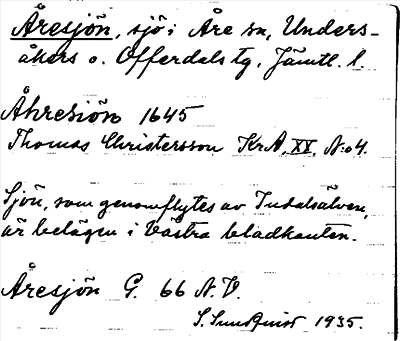 Åresjön, sjö i Åre sn, Unders-
åkers o. Offerdals tg, Jämtl. l.
Åhresiön 1645
Thomas Christersson Kr A, XX, N:o 4.
Sjön, som genomflytes av Indalsälven,
är belägen i västra bladkanten.
Åresjön G. 66 N.V.
S. Sundquist 1935.